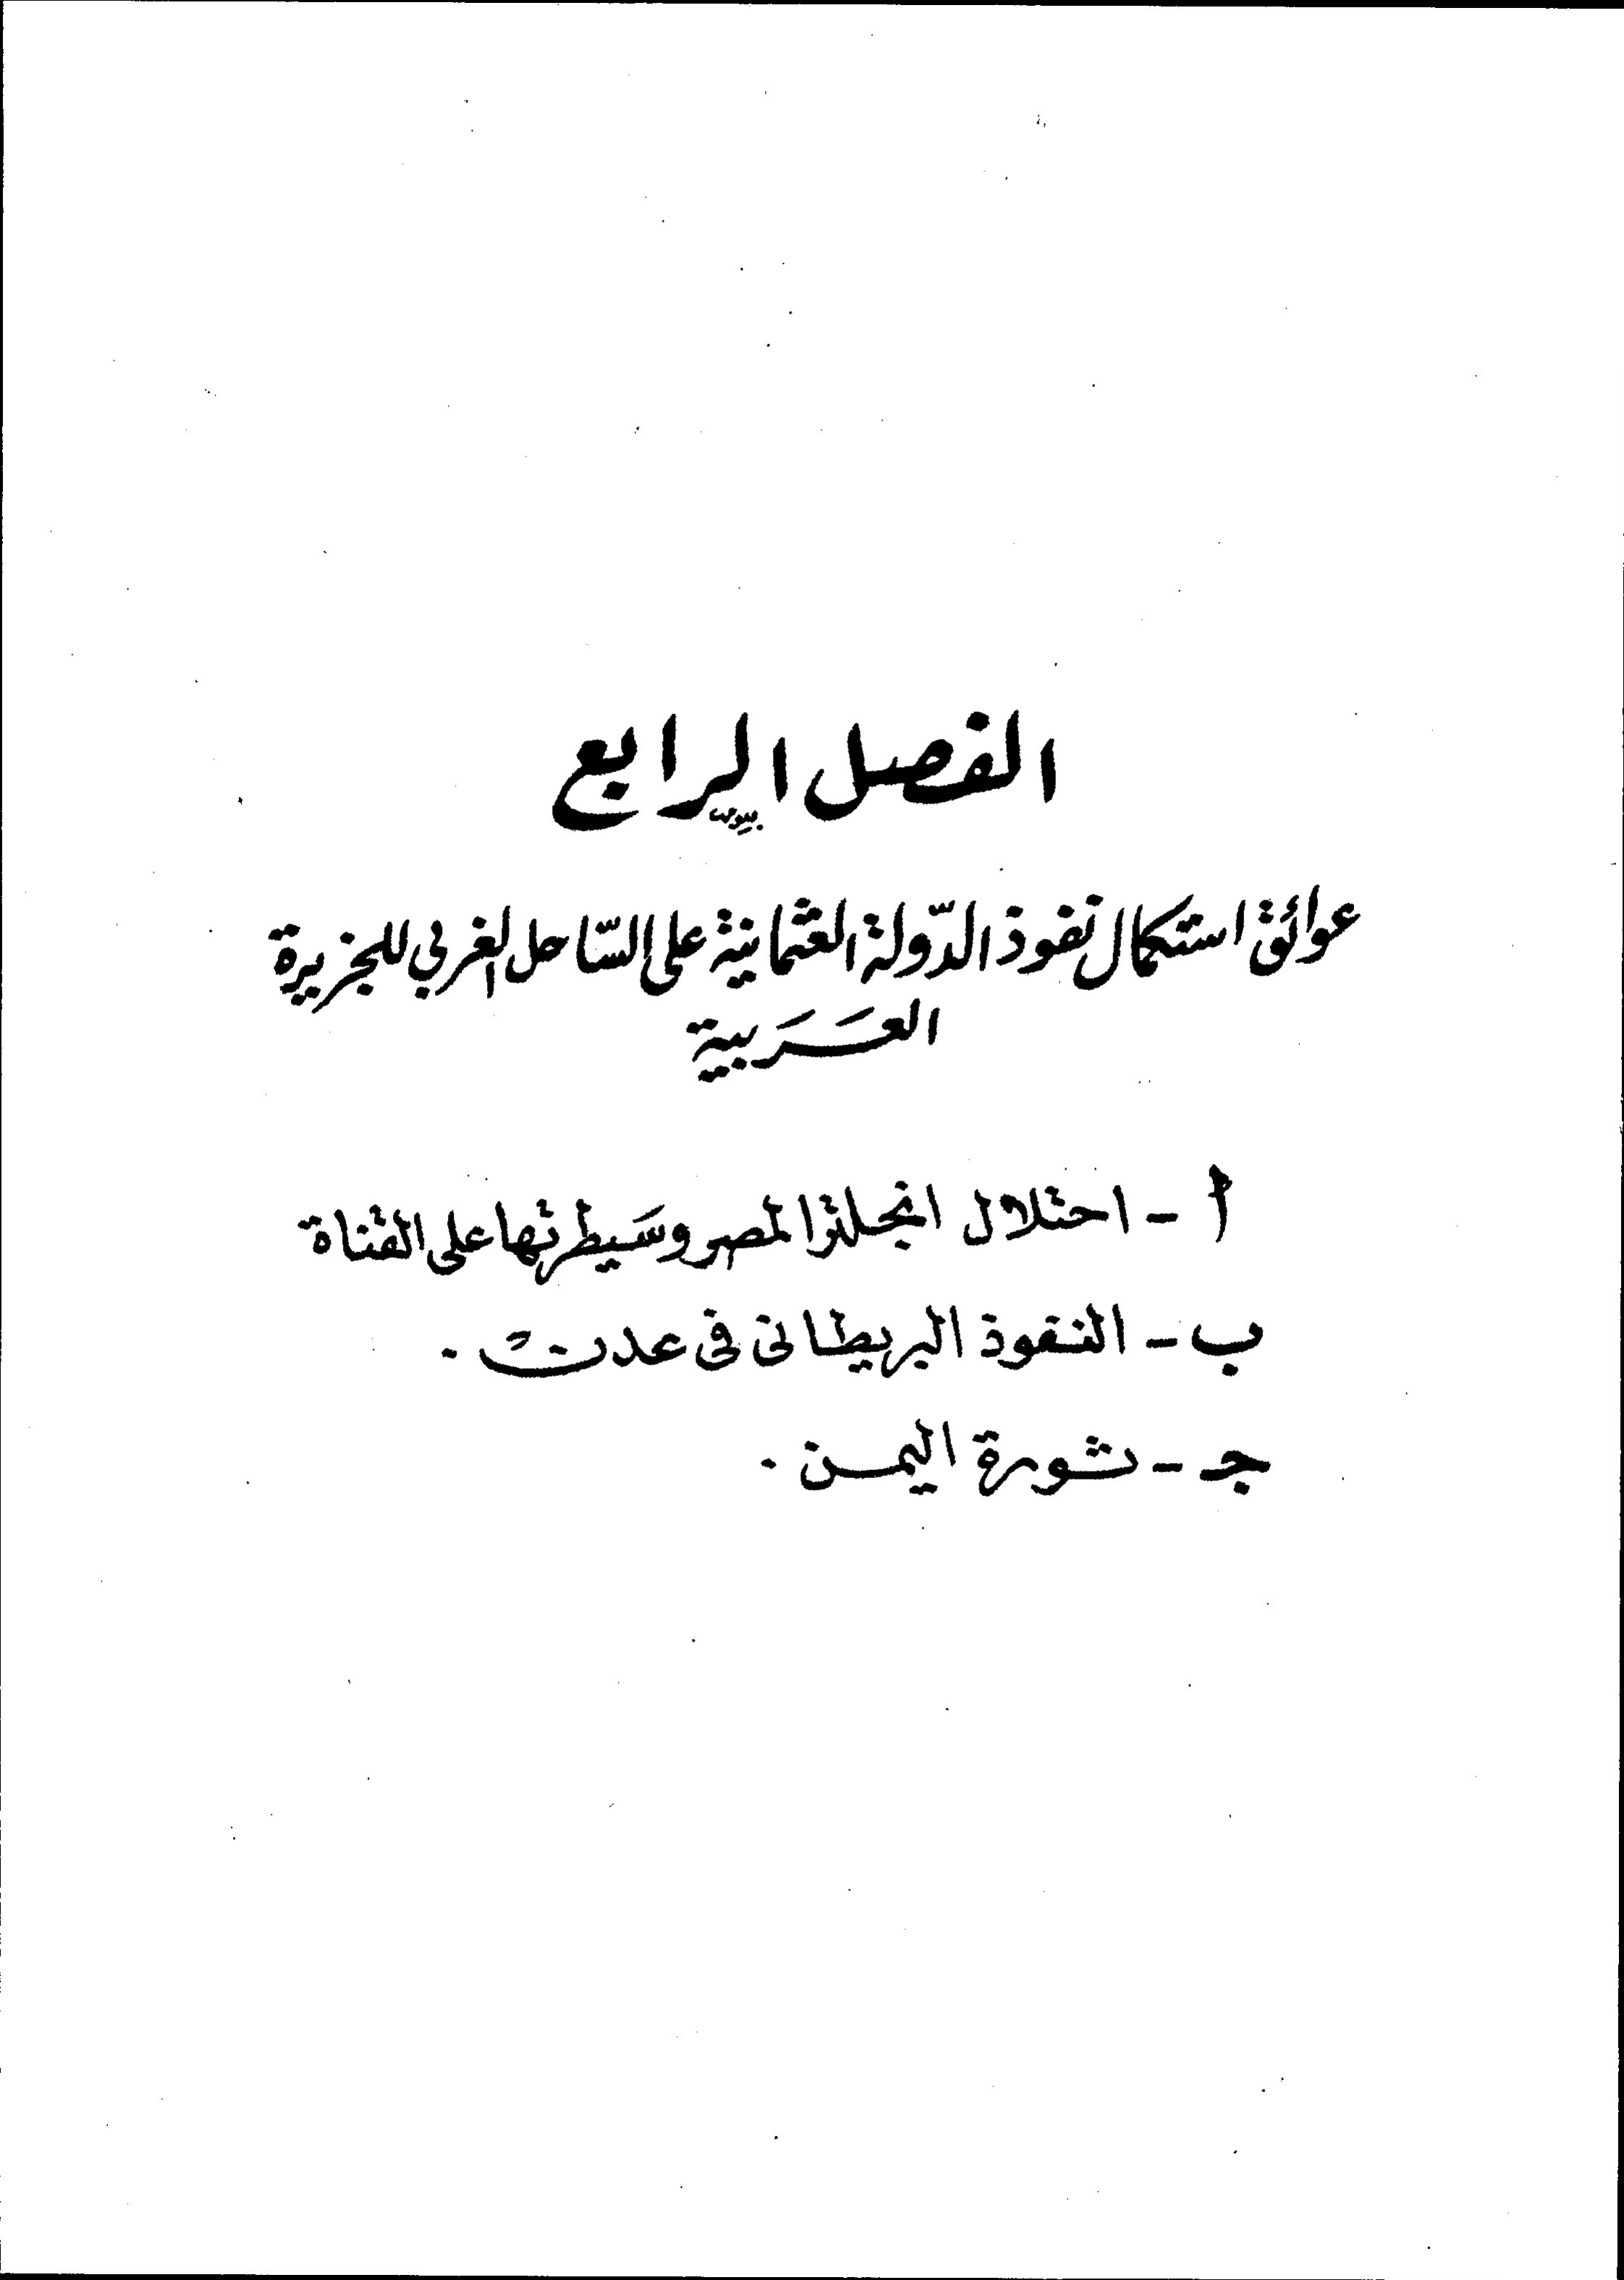 الفصل الرابع
عوائق استكمال نفوذ الدّولة العثمانية على السّاحل الغربي للجزيرة
العَرَبية
أ - احتلال انجلترا لمصر وسَيطرتها على القناة
ب - النفوذ البريطانى فى عدن .
جـ - ثورة اليمن .